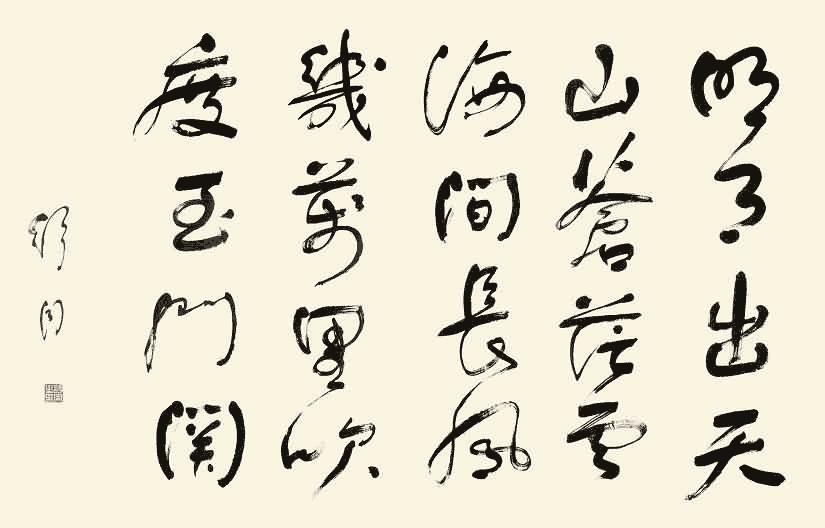 明月出天
山蒼茫雲
海間長風
幾萬里吹
度玉門関
舒同